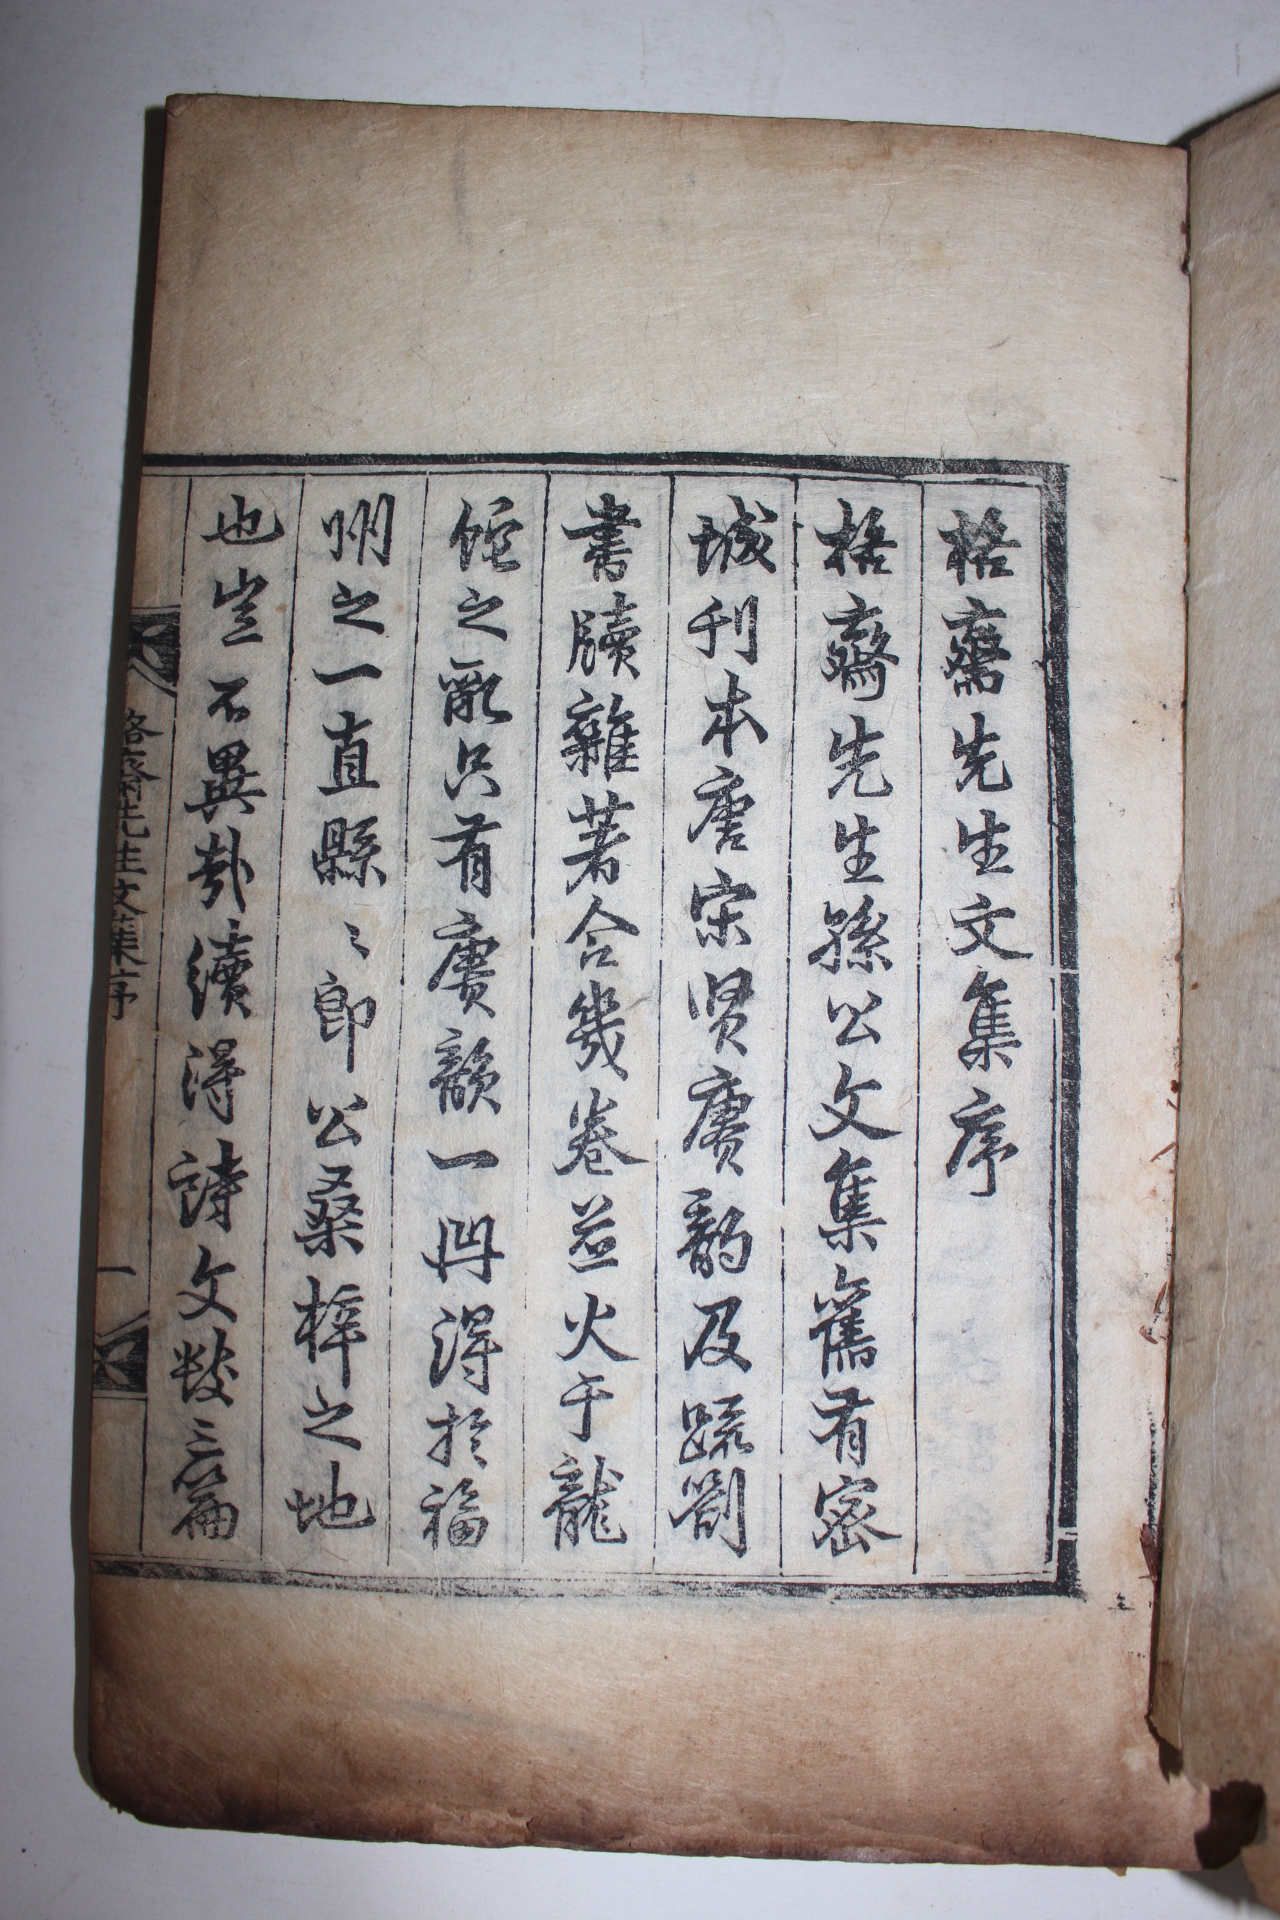 格齋先生文集序
格齋先生孫公文集舊有密
城刊本唐宋賢賡韵及疏劄
書牘雜著合幾卷並火于龍
蛇之亂只有賡韻一冊得於福
州之一直縣〻郎公桑梓之地
也豈不異哉續得詩文數三篇
格齋先生文集序
一